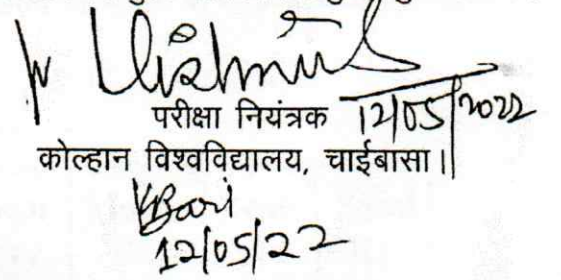 परीक्षा नियंत्रक 12/05/2022
कोल्हान विश्वविद्यालय, चाईबासा।
12/05/22